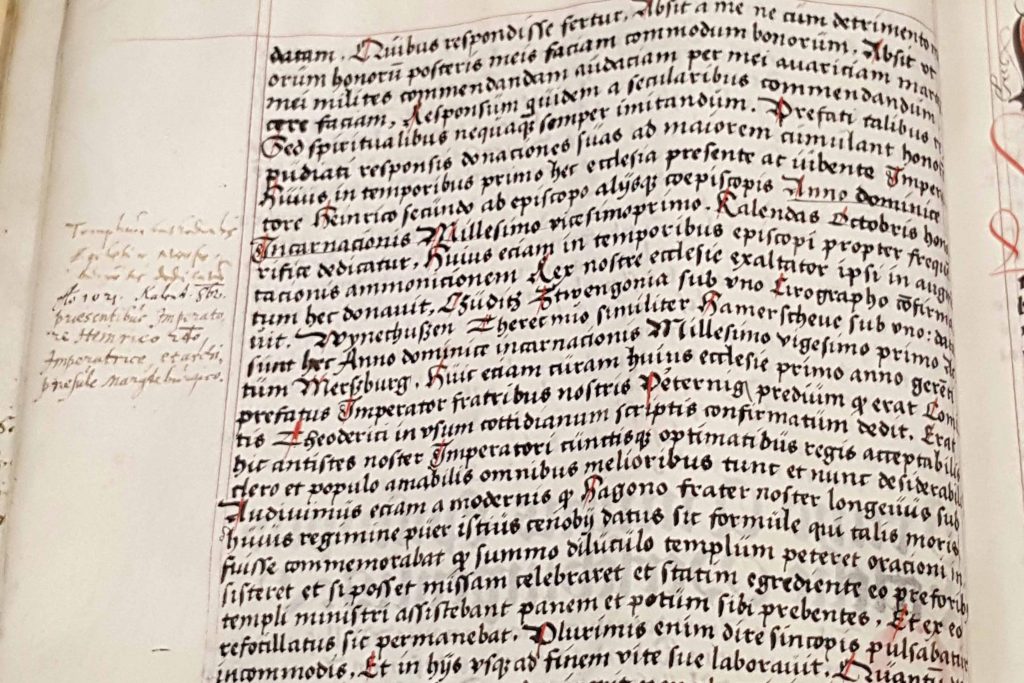 Anno 1021. Kalend. Octob.
præsentibus Imperato-
re Heinrico 2do
Imperatrice et archi-
præsule Magdeburgico.
datam. Quibus respondisse fertur, Absit a me ne cum detrimento
orum honorū posteris meis faciam commodum bonorum, Absit vt
mei milites commendandam audaciam per mei auariciam
cere faciam, Responsum quidem a secularibus commendandum
Sed spiritualibus nequaq̃ semper imitandum. Prefati talibus
pudiati responsis donaciones suas ad maiorem cumulant
Huius in temporibus primo hec ecclesia presente ac iubente Impera
tore Heinrico secundo ab episcopo alijsq̃ coepiscopis Anno dominice
Incarnacionis Millesimo vicesimoprimo. Kalendas Octobris hono
rifice dedicatur, Huius eciam in temporibus episcopi propter frequē
tacionis ammonicionem Rex nostre ecclesie exaltator ipsi in
tum hec donauit, Sub vno Cirographo cōfirma
uit. Wynechußen Theret mio similiter Hamerscheue sub vno: data
sunt hec Anno dominice incarnacionis Millesimo vigesimo primo
tum Merßburg, Huic eciam curam huius ecclesie primo anno gerēti
prefatus Imperator fratribus nostris Peternig predium qd̕ erat Comi
tis Theoderici in vsum cottidianum scriptis confirmatum dedit. Erat
hic antistes noster Imperatori cunctisq̃ optimatibus regis acceptabilis
clero et populo amabilis omnibus melioribus tunc et nunc desiderabilis
Audiuimus eciam a modernis qd̕ Hagono frater noster longeuus sub
huius regimine puer istius cenobij datus sic formule qui talis moris
fuisse commemorabat qd̕ summo diluculo templum peteret oracioni in
sisteret et si posset missam celebraret et statim egrediente eo pre foribus
templi ministri assistebant panem et potum sibi prebentes, Et ex eo
refocillatus sic permanebat. Plurimis enim dire sincopis pulsabatur
incommodis, Et in hijs vsq̃ ad finem vite sue laborauit. Quantu